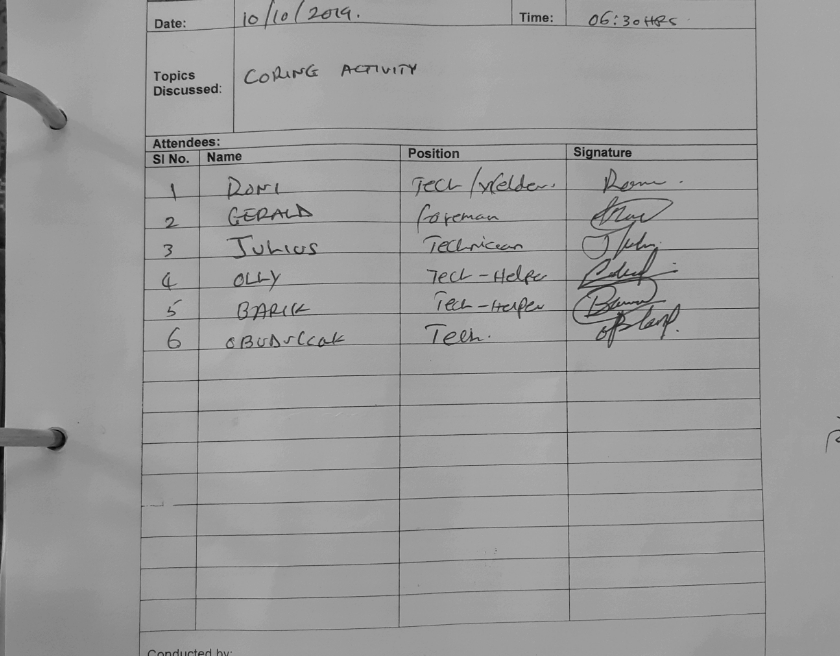 Date: 10/10/2019. Time: 06:30HRS
Topics Discussed: CORING ACTIVITY
Attendees:
Sl No. Name Position Signature
1 RONI Tech/Welder.
2 GERALD foreman
3 JULIUS Technician
4 OLLY Tech-Helper
5 BARIK Tech-Helper
6 Tech.
Conducted by: